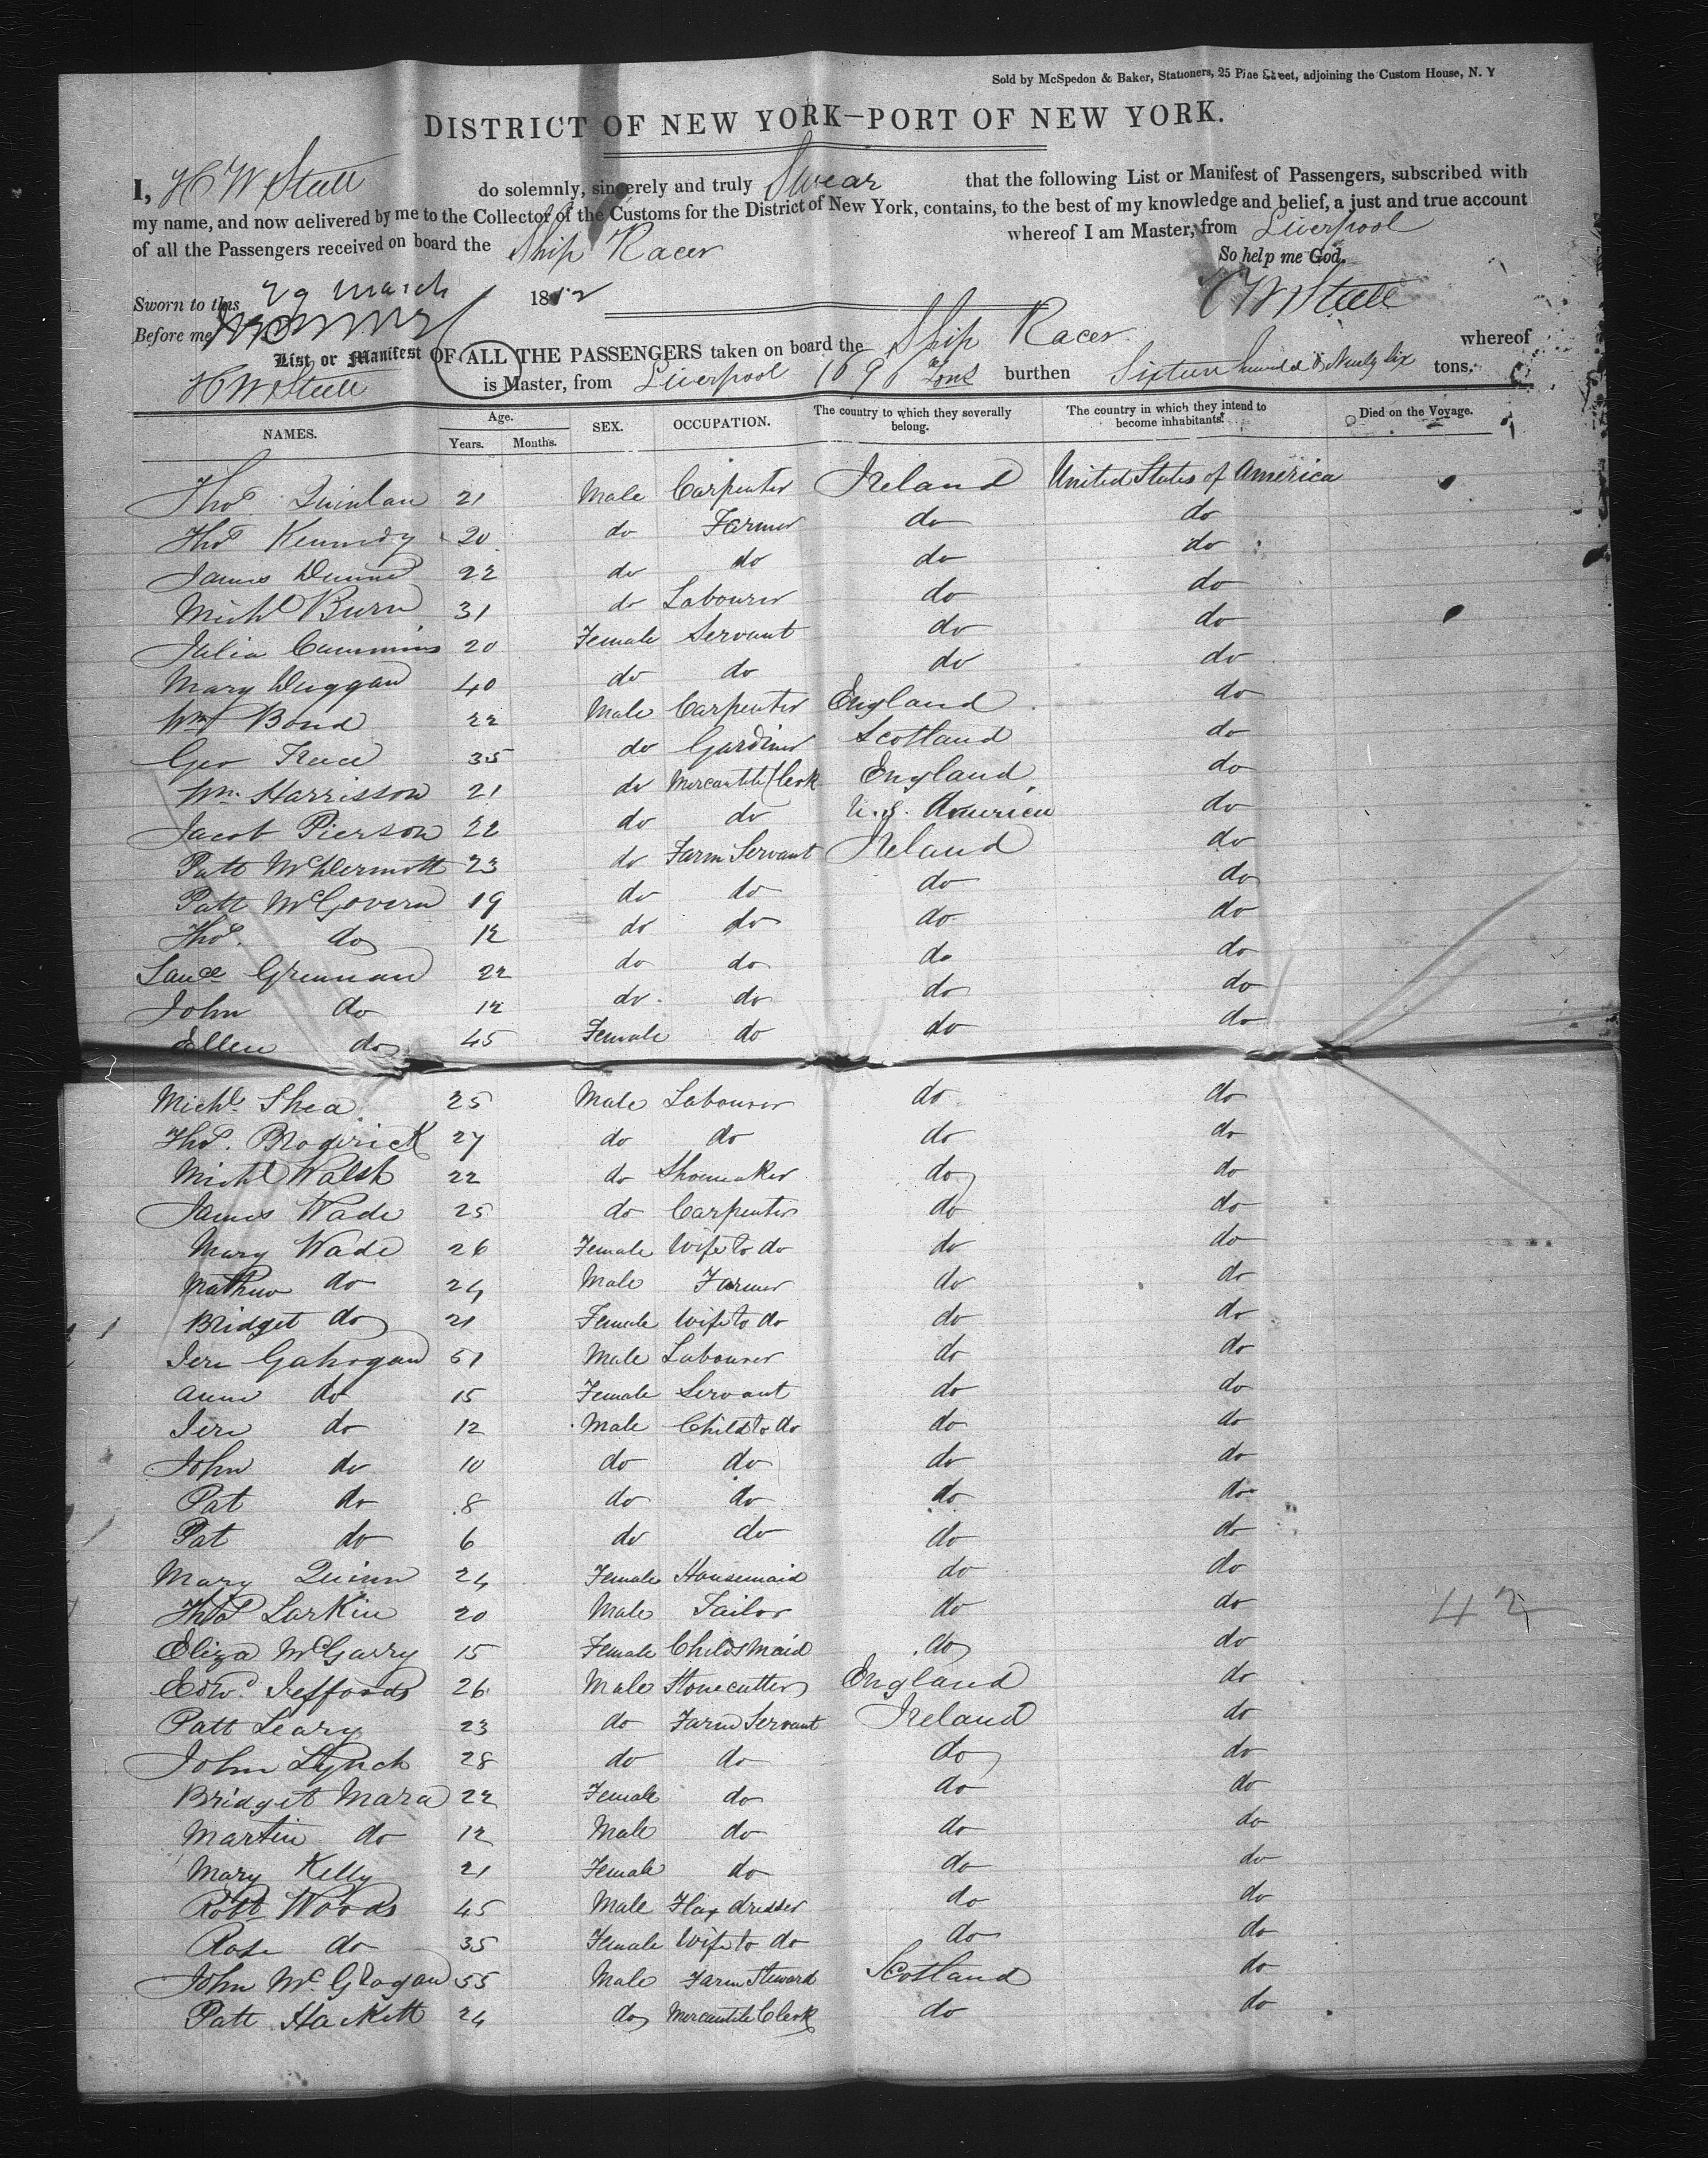 Sold by McSpedon & Baker, Stationers, 25 Pine Street, adjoining the Custom House, N. Y
DISTRICT OF NEW YORK—PORT OF NEW YORK.
I, H W Steele do solemnly, sincerely and truly Swear that the following List or Manifest of Passengers, subscribed with
my name, and now delivered by me to the Collector of the Customs for the District of New York, contains, to the best of my knowledge and belief, a just and true account
of all the Passengers received on board the Ship Racer whereof I am Master, from Liverpool
So help me God.
Sworn to this 29 March 1852 H W Steele
Before me
List or Manifest OF ALL THE PASSENGERS taken on board the Ship Racer whereof
H W Steele is Master, from Liverpool 1696 Tons burthen Sixteen hundred & Ninety Six tons.
NAMES. Age. Years. Months. SEX. OCCUPATION. The country to which they severally belong. The country in which they intend to become inhabitants. Died on the Voyage.
Thos. Quinlan 21 Male Carpenter Ireland United States of America
Thos Kennedy 20 do Farmer do do
James Dunne 22 do do do do
Michl Burn 31 do Labourer do do
Julia Cummins 20 Female Servant do do
Mary Duggan 40 do do do do
Wm Bond 22 Male Carpenter England do
Geo 35 do Gardiner Scotland do
Wm. Harrisson 21 do Mercantile Clerk England do
Jacob Pierson 22 do do U.S. America do
Patt McDermott 23 do Farm Servant Ireland do
Patt McGovern 19 do do do do
Thos. do 12 do do do do
Lauce Grennan 22 do do do do
John do 12 do do do do
Ellen do 45 Female do do do
Michl. Shea 25 Male Labourer do do
Thos. Broderick 27 do do do do
Michl Walsh 22 do Shoemaker do do
James Wade 25 do Carpenter do do
Mary Wade 26 Female Wife to do do do
Mathew do 24 Male Farmer do do
Bridget do 21 Female Wife to do do do
Jere Gahogan 51 Male Labourer do do
Anne do 15 Female Servant do do
Jere do 12 Male Child to do do do
John do 10 do do do do
Pat do 8 do do do do
Pat do 6 do do do do
Mary Quinn 24 Female Housemaid do do
Thos Larkin 20 Male Tailor do do 42
Eliza McGarry 15 Female Childs Maid do do
Edwd. Jeffords 26 Male Stonecutter England do
Patt Leary 23 do Farm Servant Ireland do
John Lynch 28 do do do do
Bridget Mara 22 Female do do do
Martin do 12 Male do do do
Mary Kelly 21 Female do do do
Robt Woods 45 Male Flax dresser do do
Rose do 35 Female Wife to do do do
John McGrogan 55 Male Farm Steward Scotland do
Patt Hackett 24 do Mercantile Clerk do do